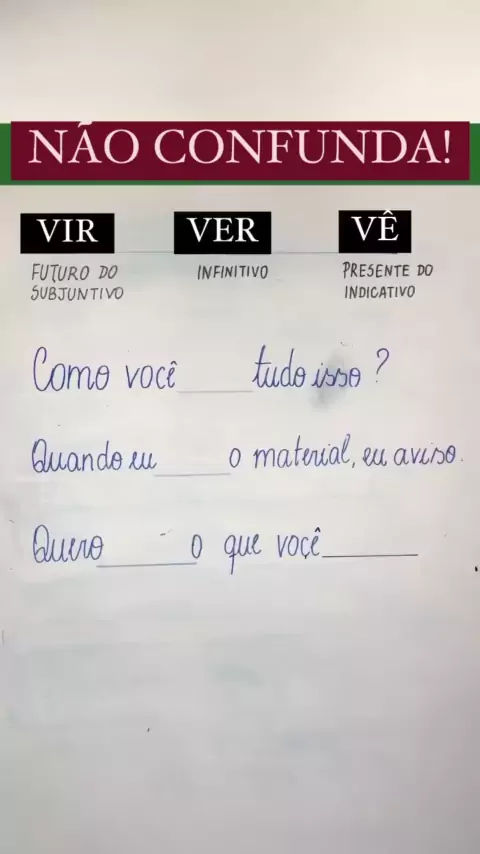 NÃO CONFUNDA!
VIR VER VÊ
FUTURO DO SUBJUNTIVO
INFINITIVO
PRESENTE DO INDICATIVO
Como você ______ tudo isso?
Quando eu ______ o material, eu aviso.
Quero ______ o que você ______